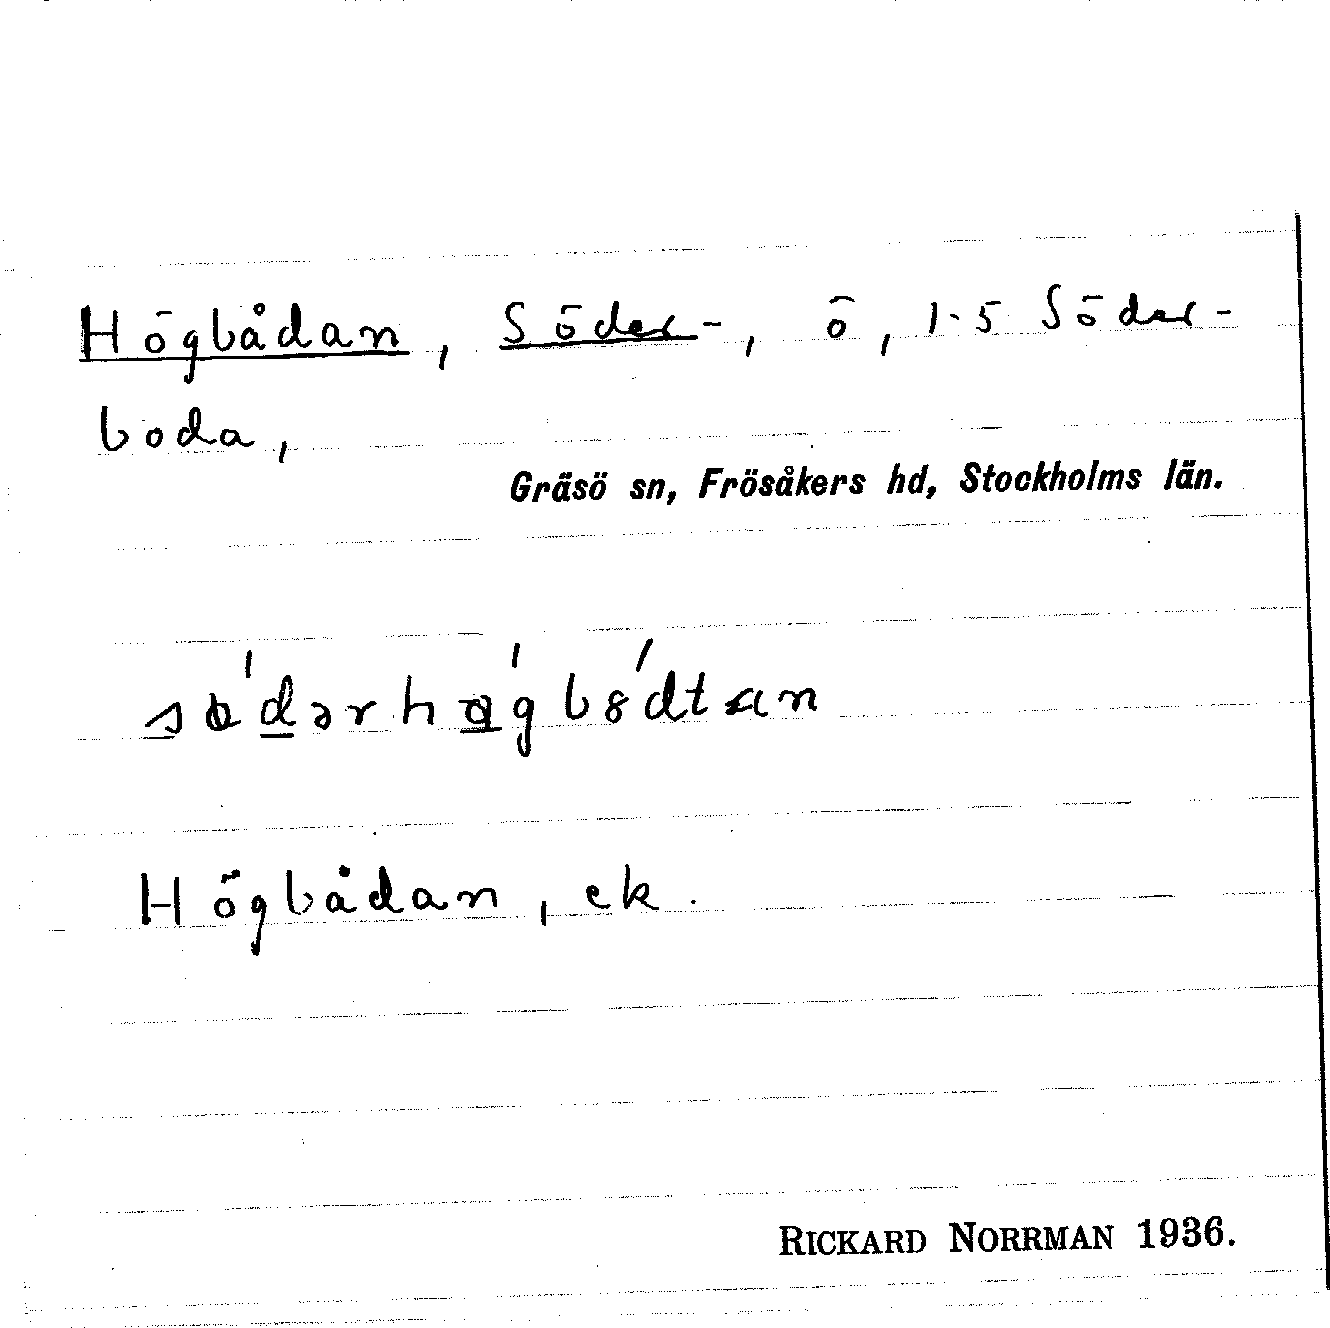 Högbådan, Söder-, ö, 1-5 Söder-
boda,
Gräsö sn, Frösåkers hd, Stockholms län.
Högbådan, ek.
RICKARD NORRMAN 1936.